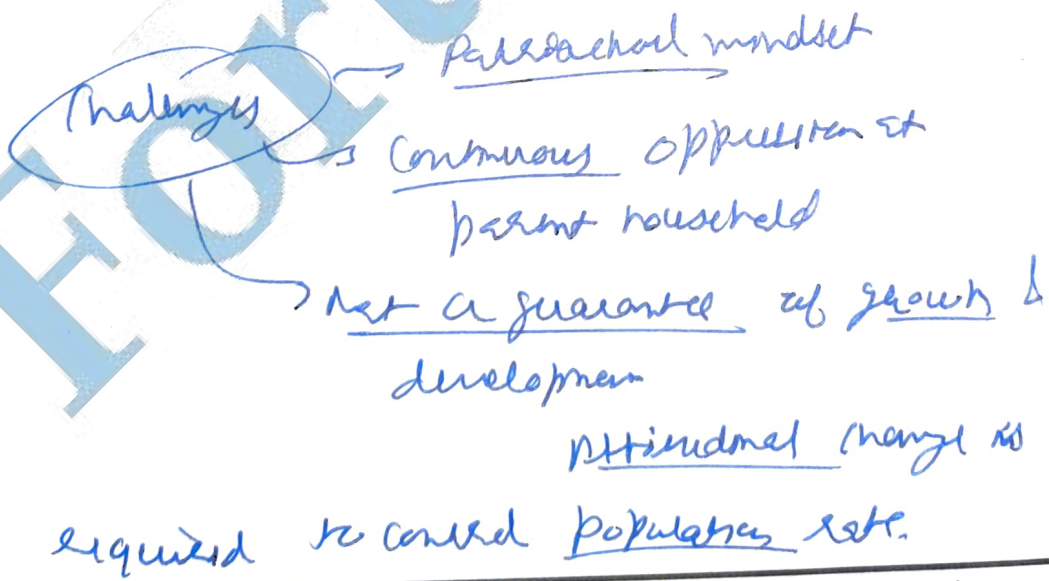 Challenges
Patriarchal mindset
Continuous oppression at
parent household
Not a guarantee of growth &
development
Attitudinal change is
required to control population rate.
For